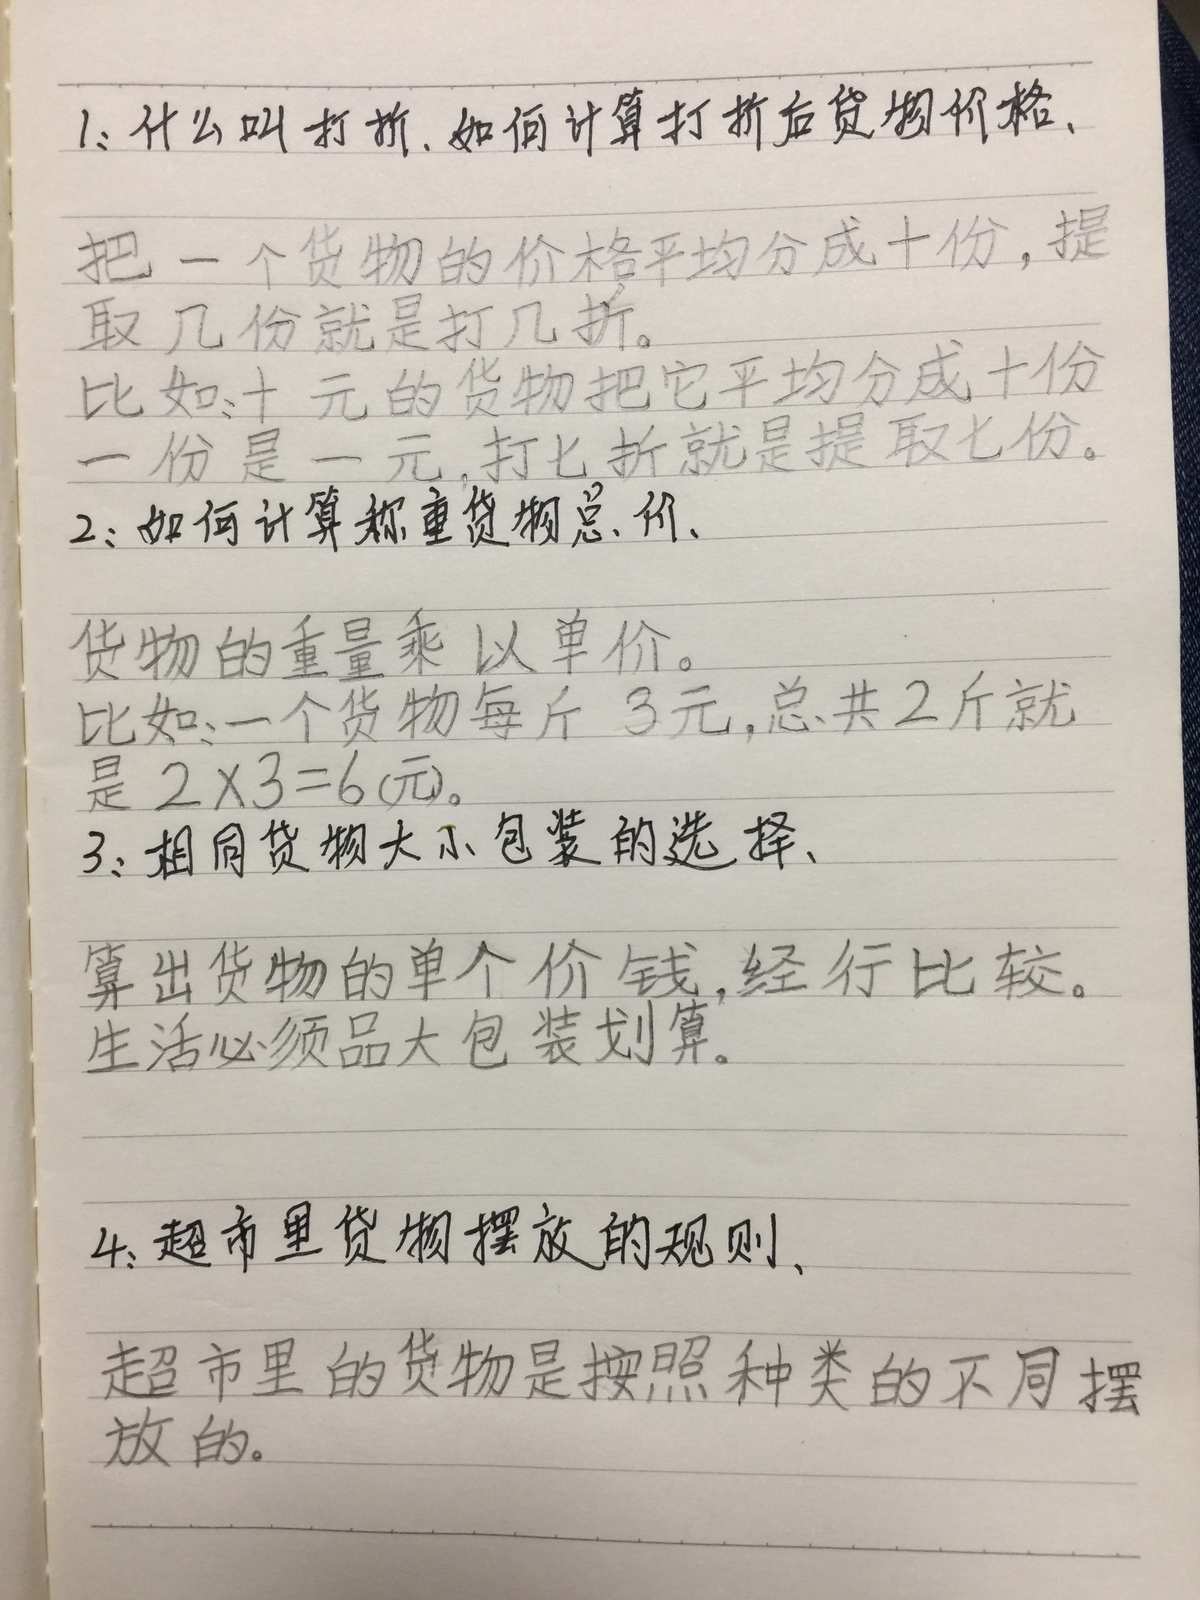 1：什么叫打折、如何计算打折后货物价格、
把一个货物的价格平均分成十份，提
取几份就是打几折。
比如：十元的货物把它平均分成十份
一份是一元，打七折就是提取七份。
2：如何计算称重货物总价、
货物的重量乘以单价。
比如：一个货物每斤3元，总共2斤就
是2×3=6(元)。
3：相同货物大小包装的选择、
算出货物的单个价钱，经行比较。
生活必须品大包装划算。
4：超市里货物摆放的规则、
超市里的货物是按照种类的不同摆
放的。